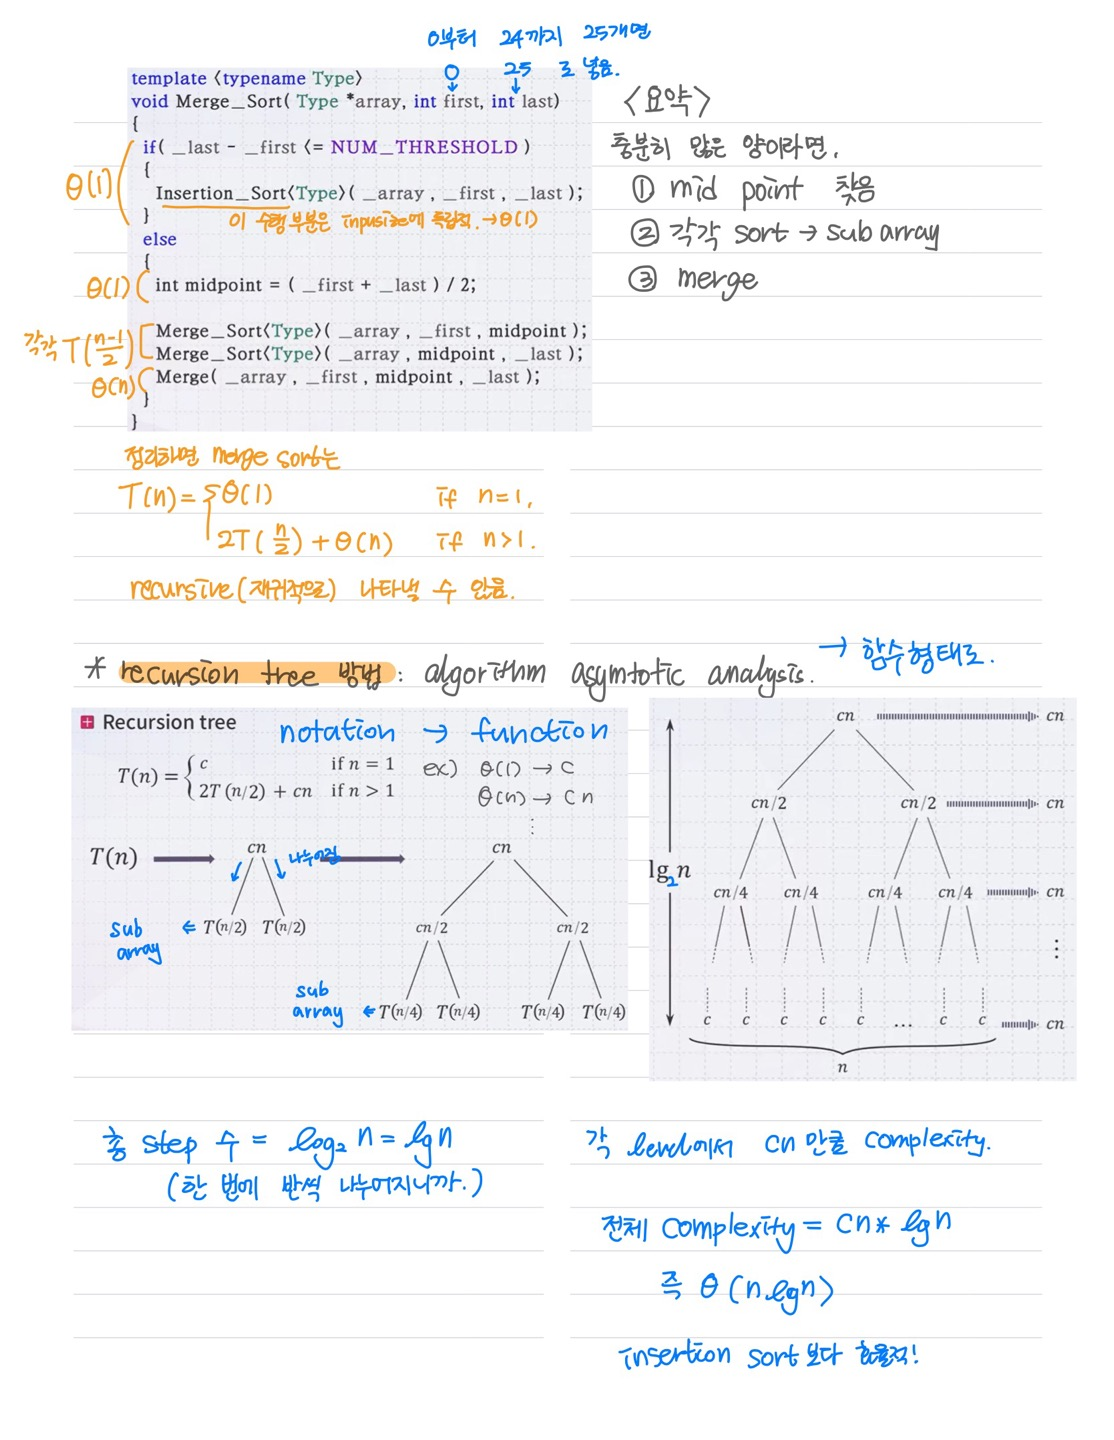 0부터 24까지 25개면
0 25 로 넣음.
template <typename Type>
void Merge_Sort( Type *array, int first, int last)
{
if( _last - _first <= NUM_THRESHOLD )
{
θ(1)
Insertion_Sort<Type>( _array , _first , _last );
}
이 수행 부분은 inpusize에 독립적. → θ(1)
else
{
θ(1) int midpoint = ( _first + _last ) / 2;
각각 T(n-1/2)
Merge_Sort<Type>( _array , _first , midpoint );
Merge_Sort<Type>( _array , midpoint , _last );
θ(n) Merge( _array , _first , midpoint , _last );
}
}
<요약>
충분히 많은 양이라면,
① mid point 찾음
② 각각 sort → sub array
③ merge
정리하면 merge sort는
T(n) = { θ(1) if n=1,
2T(n/2) + θ(n) if n>1.
recursive(재귀적으로) 나타낼 수 있음.
→ 함수형태로.
* recursion tree 방법 : algorithm asymtotic analysis.
Recursion tree
notation → function
T(n) = { c if n = 1
2T (n/2) + cn if n > 1
ex) θ(1) → c
θ(n) → cn
⋮
T(n) cn 나누어짐 cn
sub array ← T(n/2) T(n/2)
cn/2 cn/2
sub array ← T(n/4) T(n/4) T(n/4) T(n/4)
cn cn
cn/2 cn/2 cn
lg₂n
cn/4 cn/4 cn/4 cn/4 cn
⋮
c c c c c ... c c cn
n
총 step 수 = log₂ n = lgn
(한 번에 반씩 나누어지니까.)
각 level에서 cn 만큼 complexity.
전체 complexity = cn * lgn
즉 θ(n lgn)
insertion sort 보다 효율적!